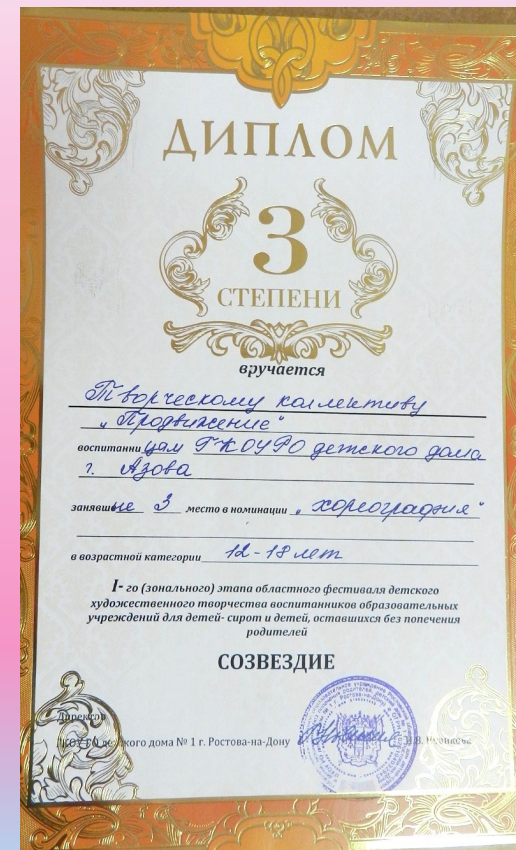 ДИПЛОМ
3
СТЕПЕНИ
вручается
Творческому коллективу
„Продвижение“
воспитанницам ГКОУРО детского дома
г. Азова
занявшие 3 место в номинации „хореография“
в возрастной категории 12-18 лет
I- го (зонального) этапа областного фестиваля детского
художественного творчества воспитанников образовательных
учреждений для детей- сирот и детей, оставшихся без попечения
родителей
СОЗВЕЗДИЕ
Директор
ГКОУ РО детского дома № 1 г. Ростова-на-Дону